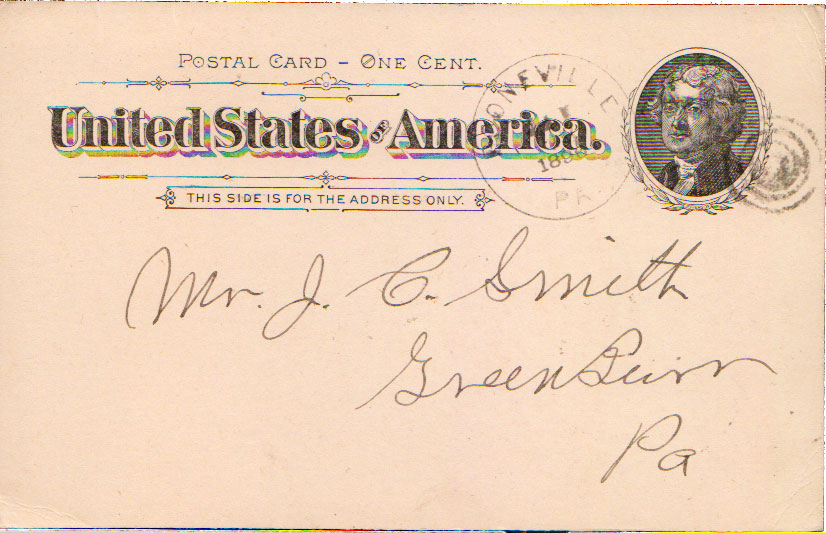 POSTAL CARD - ONE CENT.
United States of America.
THIS SIDE IS FOR THE ADDRESS ONLY.
PA
Mr. J. C. Smith
Pa